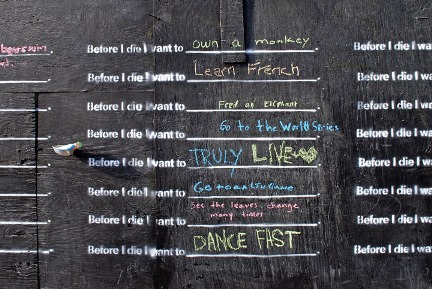 Before I die I want to own a monkey. Before I die I wa
Before I die I want to Learn French. Before I die I wa
Before I die I want to Feed an Elephant. Before I die I wa
Before I die I want to Go to the World Series Before I die I wa
Before I die I want to TRULY LIVE Before I die I wa
Before I die I want to Go to Before I die I wa
Before I die I want to See the leaves change
many times Before I die I wa
Before I die I want to DANCE FAST Before I die I wa